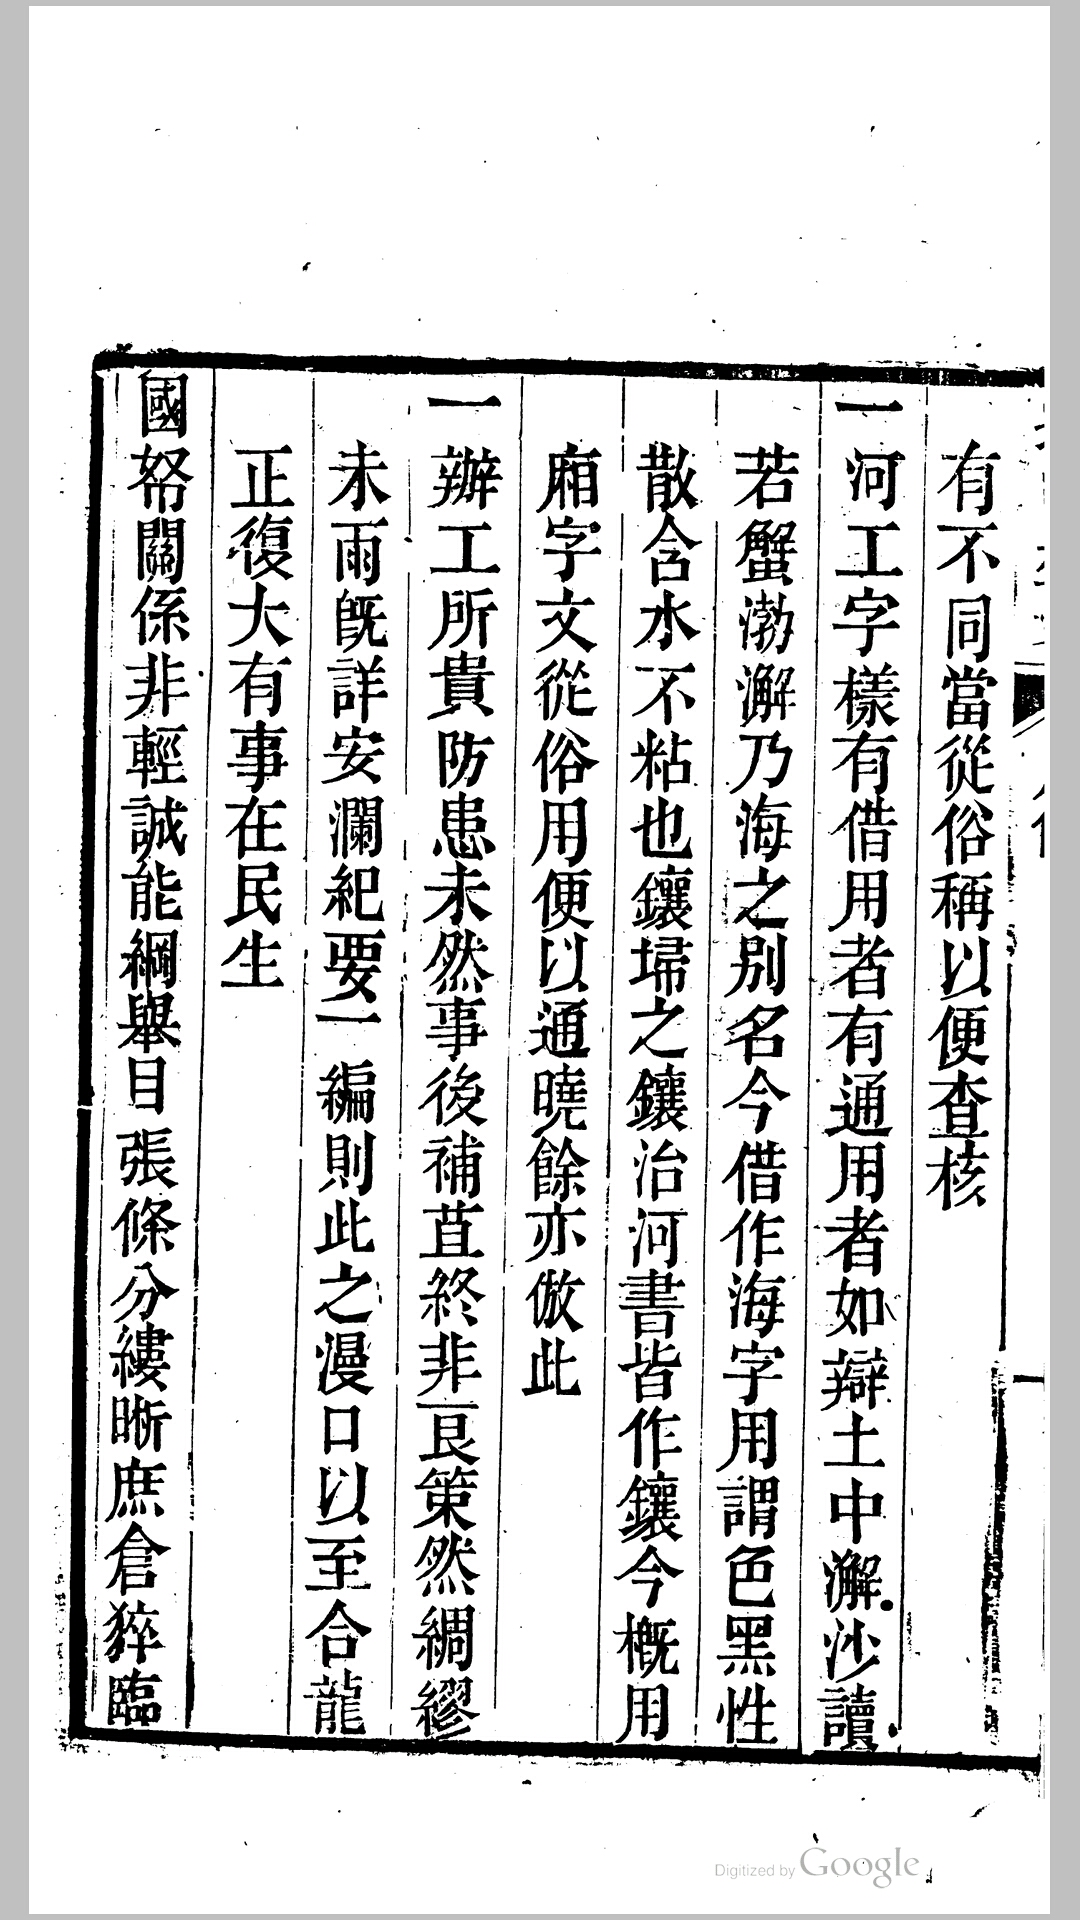 有不同當從俗稱以便查核
一河工字樣有借用者有通用者如辯土中澥沙讀
若蟹渤澥乃海之别名今借作海字用謂色黑性
散含水不粘也鑲埽之鑲治河書皆作鑲今概用
廂字文從俗用便以通曉餘亦倣此
一辦工所貴防患未然事後補苴終非良策然綢繆
未雨旣詳安瀾紀要一編則此之漫口以至合龍
正復大有事在民生
國帑關係非輕誠能綱舉目張條分縷晰庶倉猝臨
Digitized by Google